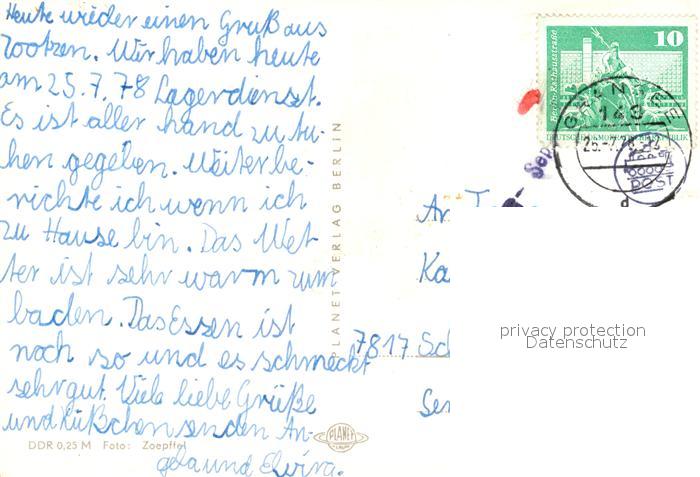 Heute wieder einen Gruß aus
Zootzen. Wir haben heute
am 25.7.78 Lagerdienst.
Es ist aller hand zu tu-
hen gegeben. Weiter be-
richte ich wenn ich
zu Hause bin. Das Wet-
ter ist sehr warm zum
baden. Das Essen ist
noch so und es schmeckt
sehr gut. Viele liebe Grüße
und Küßchen senden An-
gela und Elvira.
DDR 0,25 M Foto: Zoepffel
PLANET-VERLAG BERLIN
PLANET
10
Berlin-Rathausstraße
DEUTSCHE DEMOKRATISCHE REPUBLIK
143
d
POST
Ka
7817 Sch
privacy protection
Datenschutz